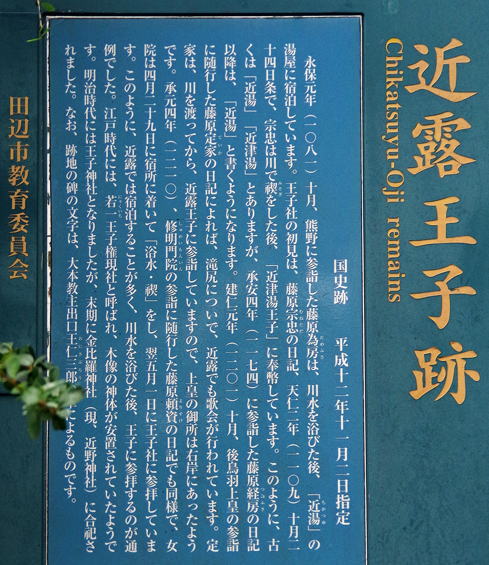 近露王子跡
Chikatsuyu-Oji remains
国史跡　平成十二年十一月二日指定
永保元年（一〇八一）十月、熊野に参詣した藤原為房は、川水を浴びた後、「近湯」の
湯屋に宿泊しています。王子社の初見は、藤原宗忠の日記、天仁二年（一一〇九）十月二
十四日条で、宗忠は川で禊をした後、「近津湯王子」に奉幣しています。このように、古
くは「近湯」「近津湯」とありますが、承安四年（一一七四）に参詣した藤原経房の日記
以降は、「近湯」と書くようになります。建仁元年（一二〇一）十月、後鳥羽上皇の参詣
に随行した藤原定家の日記によれば、滝尻についで、近露でも歌会が行われています。定
家は、川を渡ってから、近露王子に参詣していますので、上皇の御所は右岸にあったよう
です。承元四年（一二一〇）、修明門院の参詣に随行した藤原頼資の日記でも同様で、女
院は四月二十九日に宿所に着いて「浴水・禊」をし、翌五月一日に王子社に参拝していま
す。このように、近露では宿泊することが多く、川水を浴びた後、王子に参拝するのが通
例でした。江戸時代には、若一王子権現社と呼ばれ、木像の神体が安置されていたようで
す。明治時代には王子神社となりましたが、末期に金比羅神社（現、近野神社）に合祀さ
れました。なお、跡地の碑の文字は、大本教主出口王仁三郎　によるものです。
田辺市教育委員会